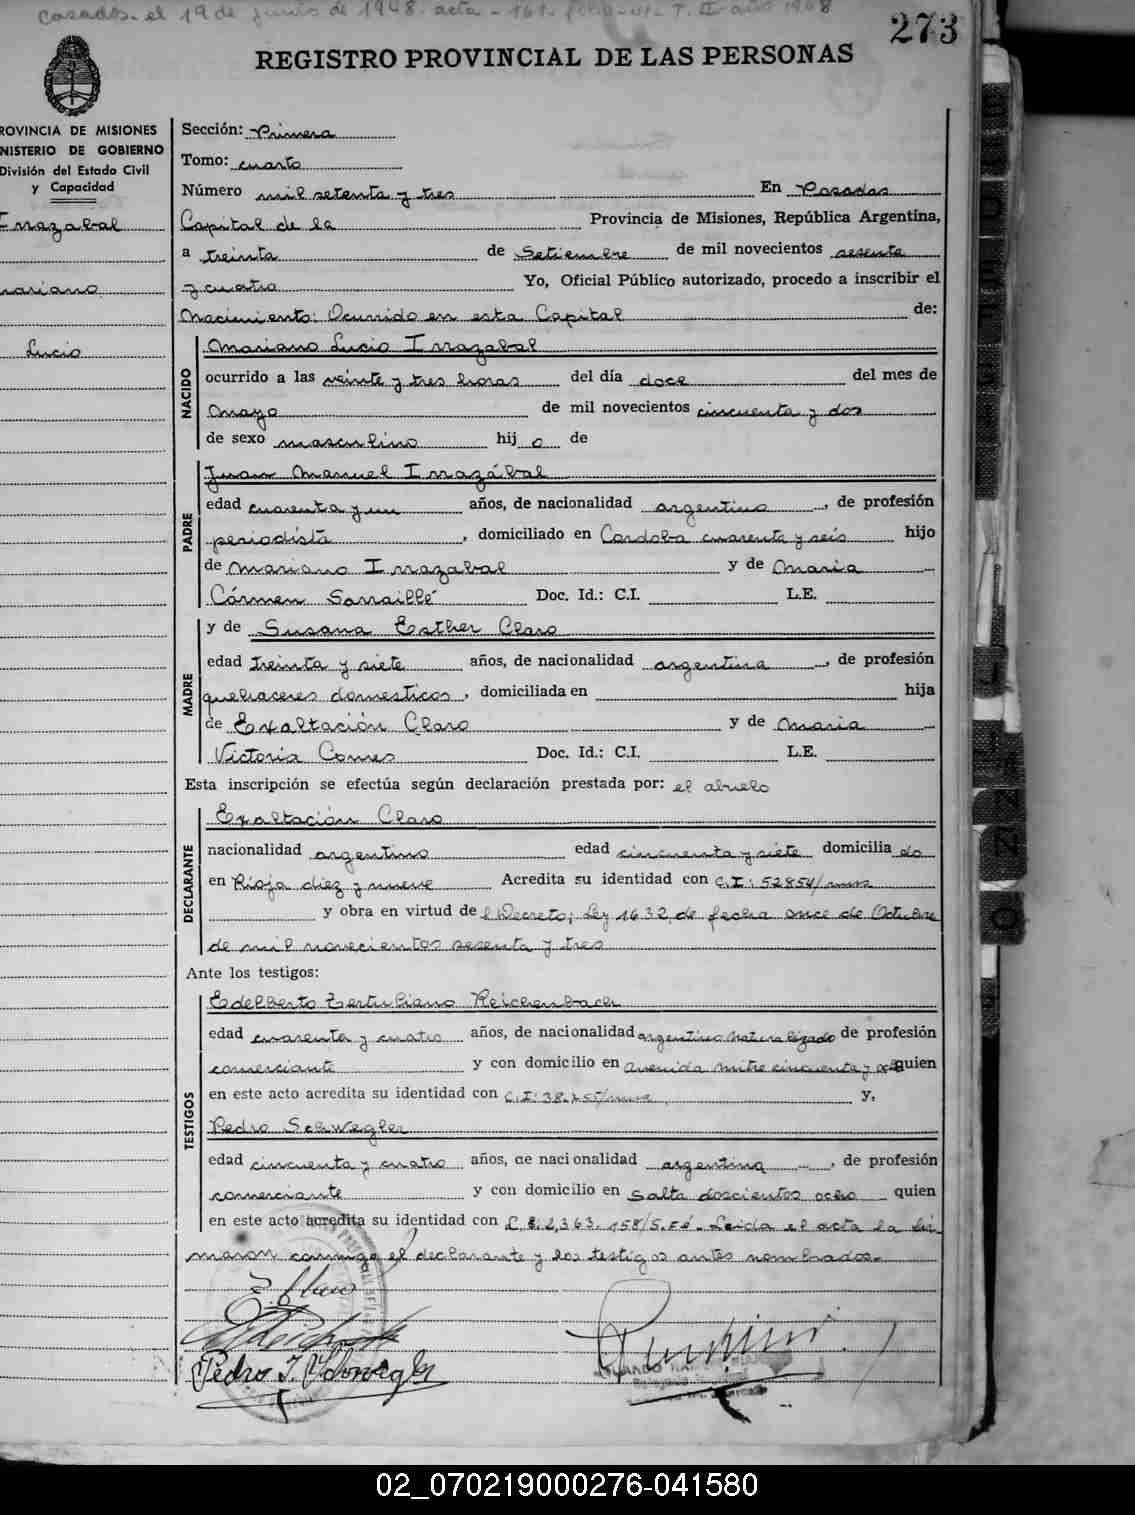 Casados. el 19 de junio de 1948. acta - 161. folio T. II. año 1948
273
REGISTRO PROVINCIAL DE LAS PERSONAS
PROVINCIA DE MISIONES
MINISTERIO DE GOBIERNO
División del Estado Civil
y Capacidad
Irrazabal
Mariano
Lucio
Sección: Primera
Tomo: cuarto
Número mil setenta y tres En Posadas
Capital de la Provincia de Misiones, República Argentina,
a treinta de Setiembre de mil novecientos sesenta
y cuatro Yo, Oficial Público autorizado, procedo a inscribir el
Nacimiento: Ocurrido en esta Capital de:
NACIDO
Mariano Lucio Irrazabal
ocurrido a las veinte y tres horas del día doce del mes de
Mayo de mil novecientos cincuenta y dos
de sexo masculino hijo de
PADRE
Juan Manuel Irrazábal
edad cuarenta y un años, de nacionalidad argentino, de profesión
periodista, domiciliado en Cordoba cuarenta y seis hijo
de Mariano Irrazabal y de Maria
Cármen Sarraillé Doc. Id.: C.I. L.E.
MADRE
y de Susana Esther Claro
edad treinta y siete años, de nacionalidad argentina, de profesión
quehaceres domesticos, domiciliada en hija
de Exaltación Claro y de Maria
Victoria Comes Doc. Id.: C.I. L.E.
Esta inscripción se efectúa según declaración prestada por: el abuelo
DECLARANTE
Exaltación Claro
nacionalidad argentino edad cincuenta y siete domiciliado
en Rioja diez y nueve Acredita su identidad con C.I: 52854/mnes
y obra en virtud del Decreto; Ley 1632, de fecha once de Octubre
de mil novecientos sesenta y tres
Ante los testigos:
TESTIGOS
Edelberto Tertuliano Reichenbach
edad cuarenta y cuatro años, de nacionalidad argentino naturalizado de profesión
comerciante y con domicilio en Avenida Mitre cincuenta y quien
en este acto acredita su identidad con C.I: 38.255/mnes, y,
Pedro Schwegler
edad cincuenta y cuatro años, de nacionalidad argentina, de profesión
comerciante y con domicilio en Salta doscientos ocho quien
en este acto acredita su identidad con 2,363.158/S.Fé. Leida el acta la fir
maron conmigo el declarante y los testigos antes nombrados.
Pedro J. Schwegler
02_070219000276-041580